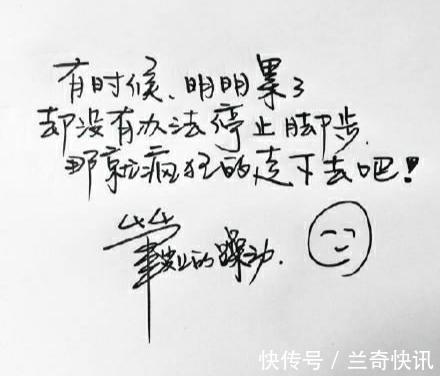 有时候、明明累了
却没有办法停止脚步.
那就疯狂的走下去吧!
的躁动.
快传号 / 兰奇快讯